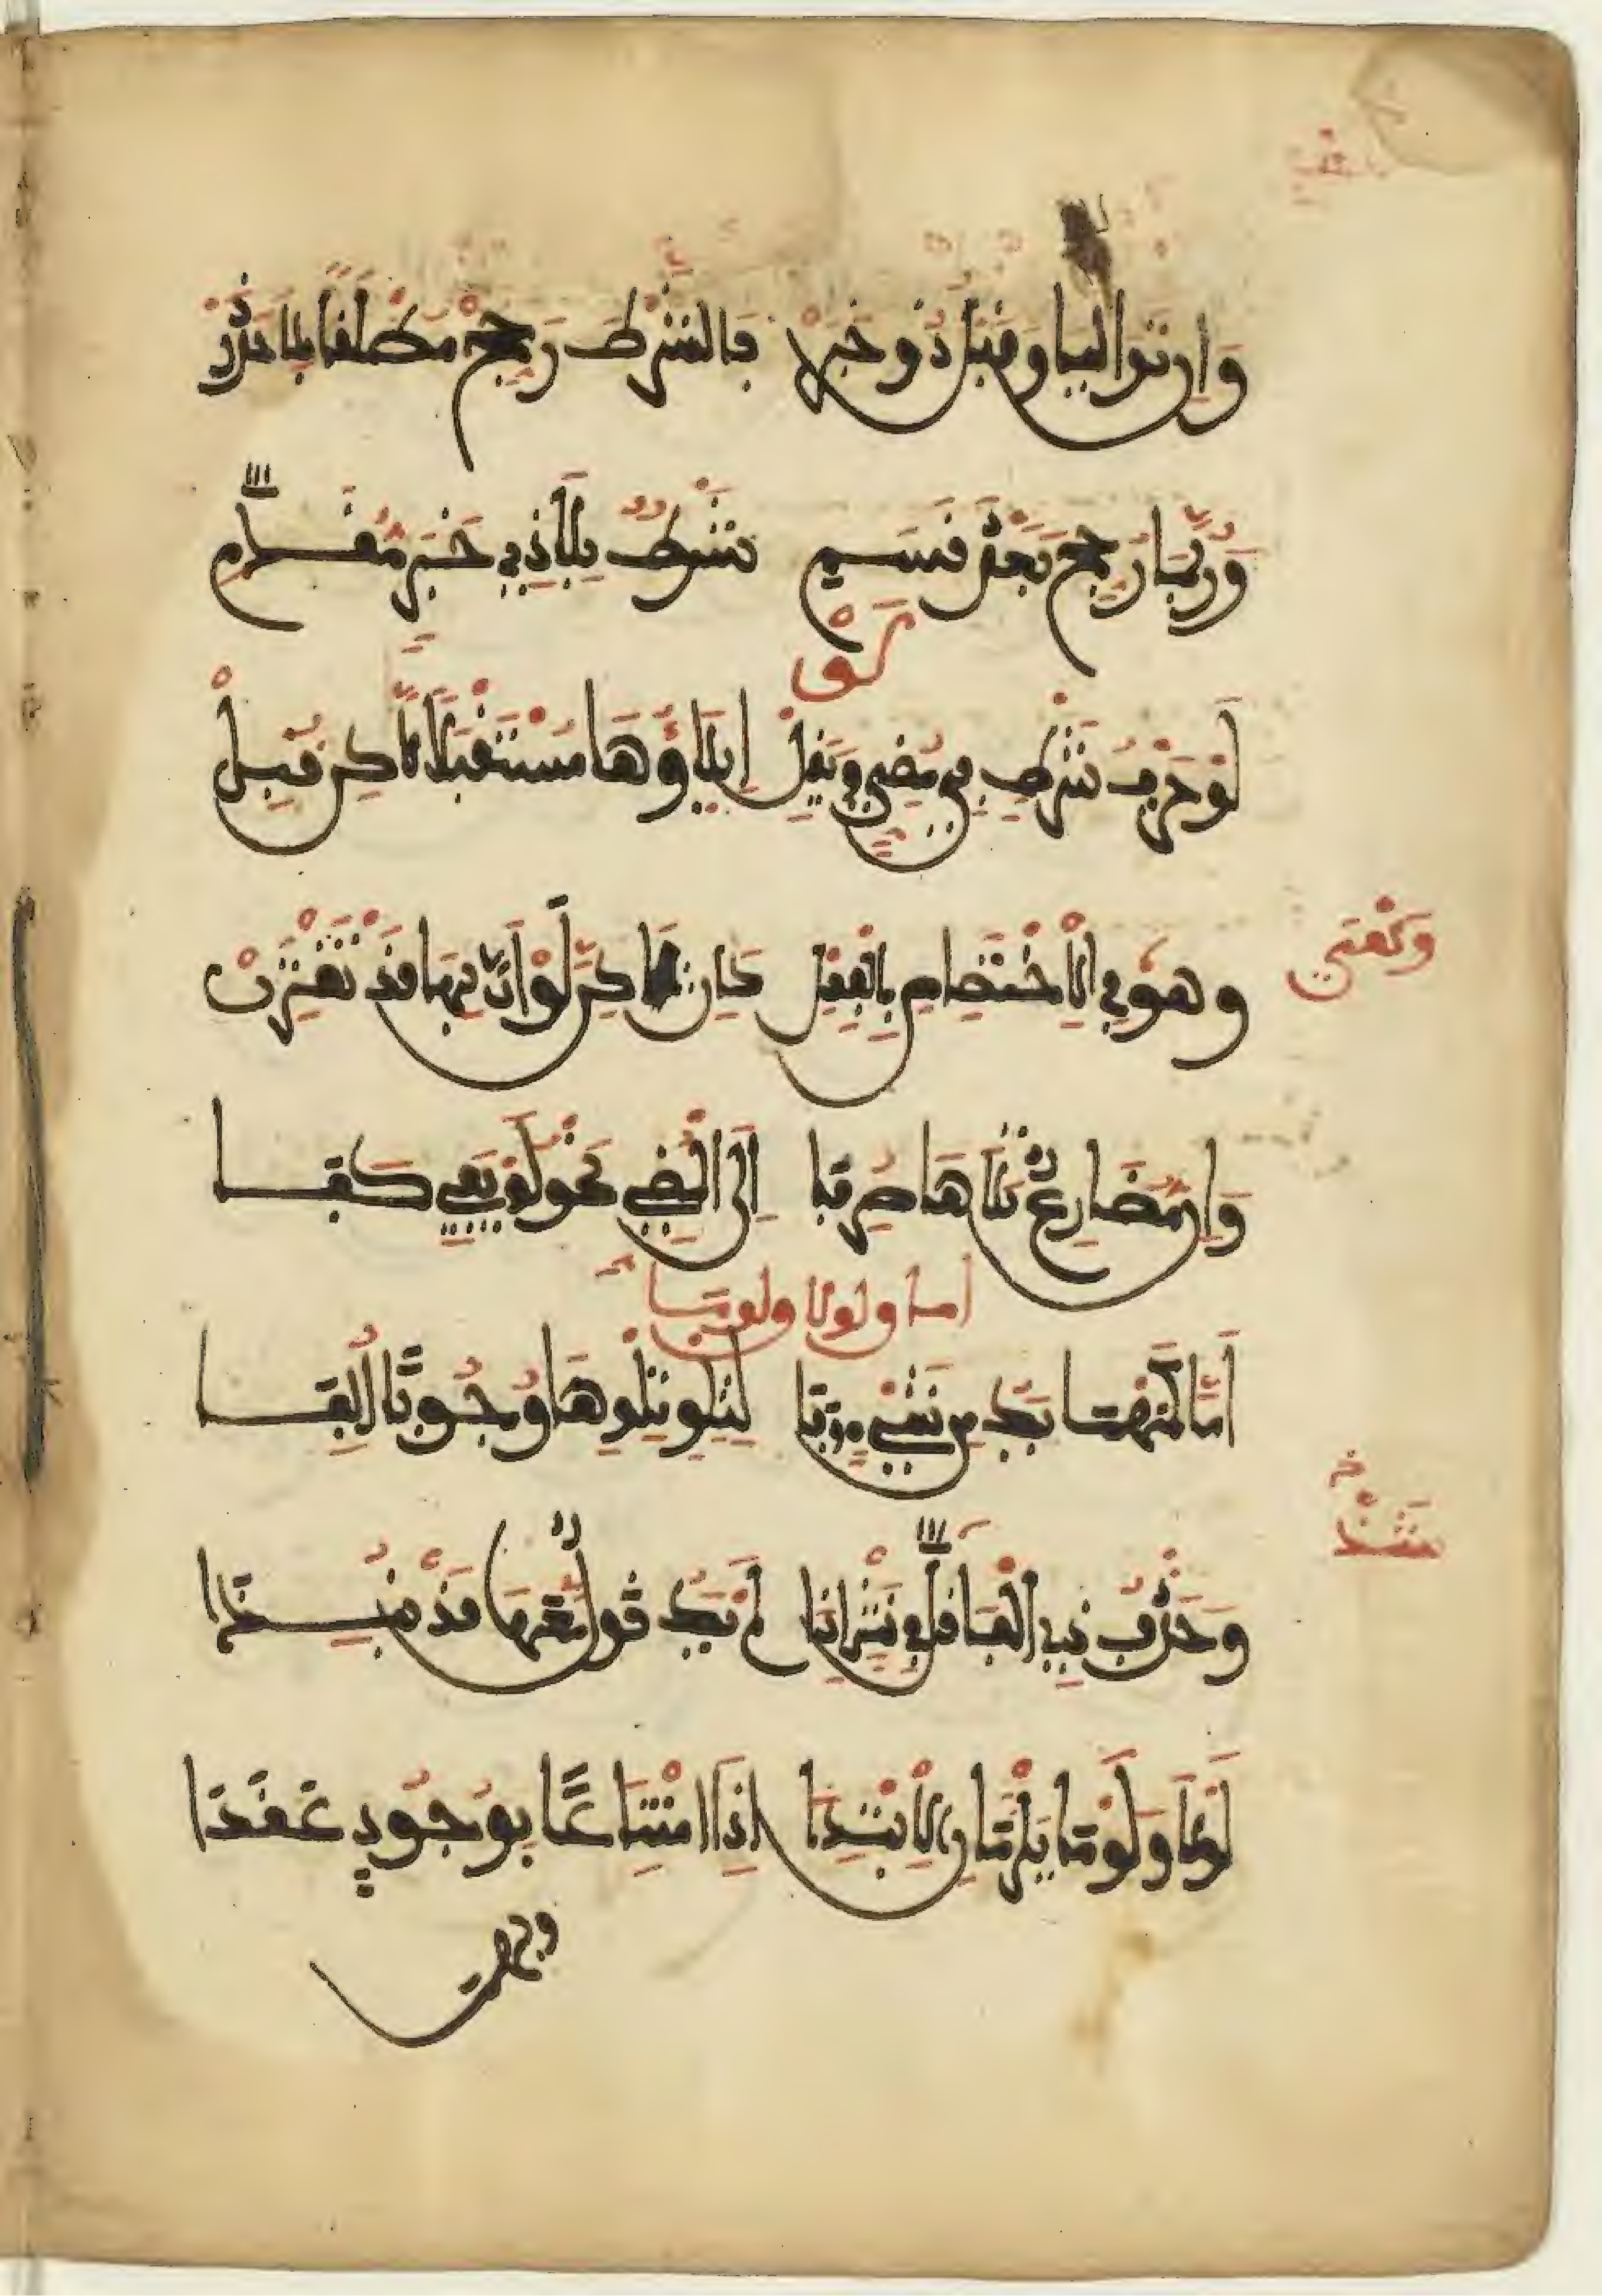 وَإِن تَوَالَيَا وَقَبْلُ ذُو خَبَرْ فَالشَّرْطَ رَجِّحْ مُطْلَقًا بِلَا حَذَرْ
وَرُبَّمَا رُجِّحَ بَعْدَ قَسَمِ شَرْطٌ بِلَا ذِي خَبَرٍ مُقَدَّمِ
لَوْ
لَوْ حَرْفُ شَرْطٍ فِي مُضِيٍّ وَيَقِلْ إِيلَاؤُهَا مُسْتَقْبَلًا لَّكِن قُبِلْ
وَهْوَ فِي الِاخْتِصَاصِ بِالْفِعْلِ كَإِنْ لَكِنَّ لَوْ أَنَّ بِهَا قَدْ تَقْتَرِنْ
وَإِن مُضَارِعٌ تَلَاهَا صُرِفَا إِلَى الْمُضِيِّ نَحْوُ لَوْ يَفِي كَفَا
أما ولولا ولوما
أَمَّا كَمَهْمَا يَكُ مِن شَيْءٍ وَفَا لِتِلْوِ تِلْوِهَا وُجُوبًا أُلِفَا
وَحَذْفُ ذِي الْفَا قَلَّ فِي نَثْرٍ إِذَا لَمْ يَكُ قَوْلٌ مَعَهَا قَدْ نُبِذَا
لَوْلَا وَلَوْمَا يَلْزَمَانِ الِابْتِدَا إِذَا امْتِنَاعًا بِوُجُودٍ عَقَدَا
وبهما